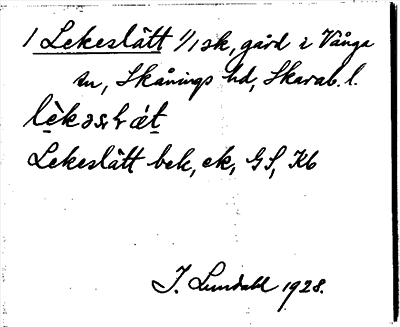 1 Lekeslätt 1/1 sk, gård i Vånga
sn, Skånings hd, Skarab. l.
Lekeslätt bek, ek, GS, Kb
J. Lundahl 1928.